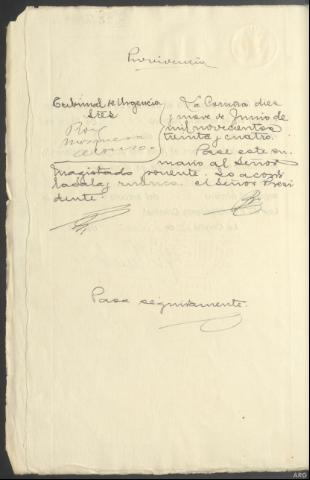 Providencia
Tribunal de Urgencia
SSES
Roig
Mosquera
Alonso.
La Coruña diez
y nueve de Junio de
mil novecientos
treinta y cuatro.
Pase este su
mario al Señor
Magistrado ponente. Lo acordó
la Sala y rubrica el Señor Presi
dente.
Pasa seguidamente.
ARG